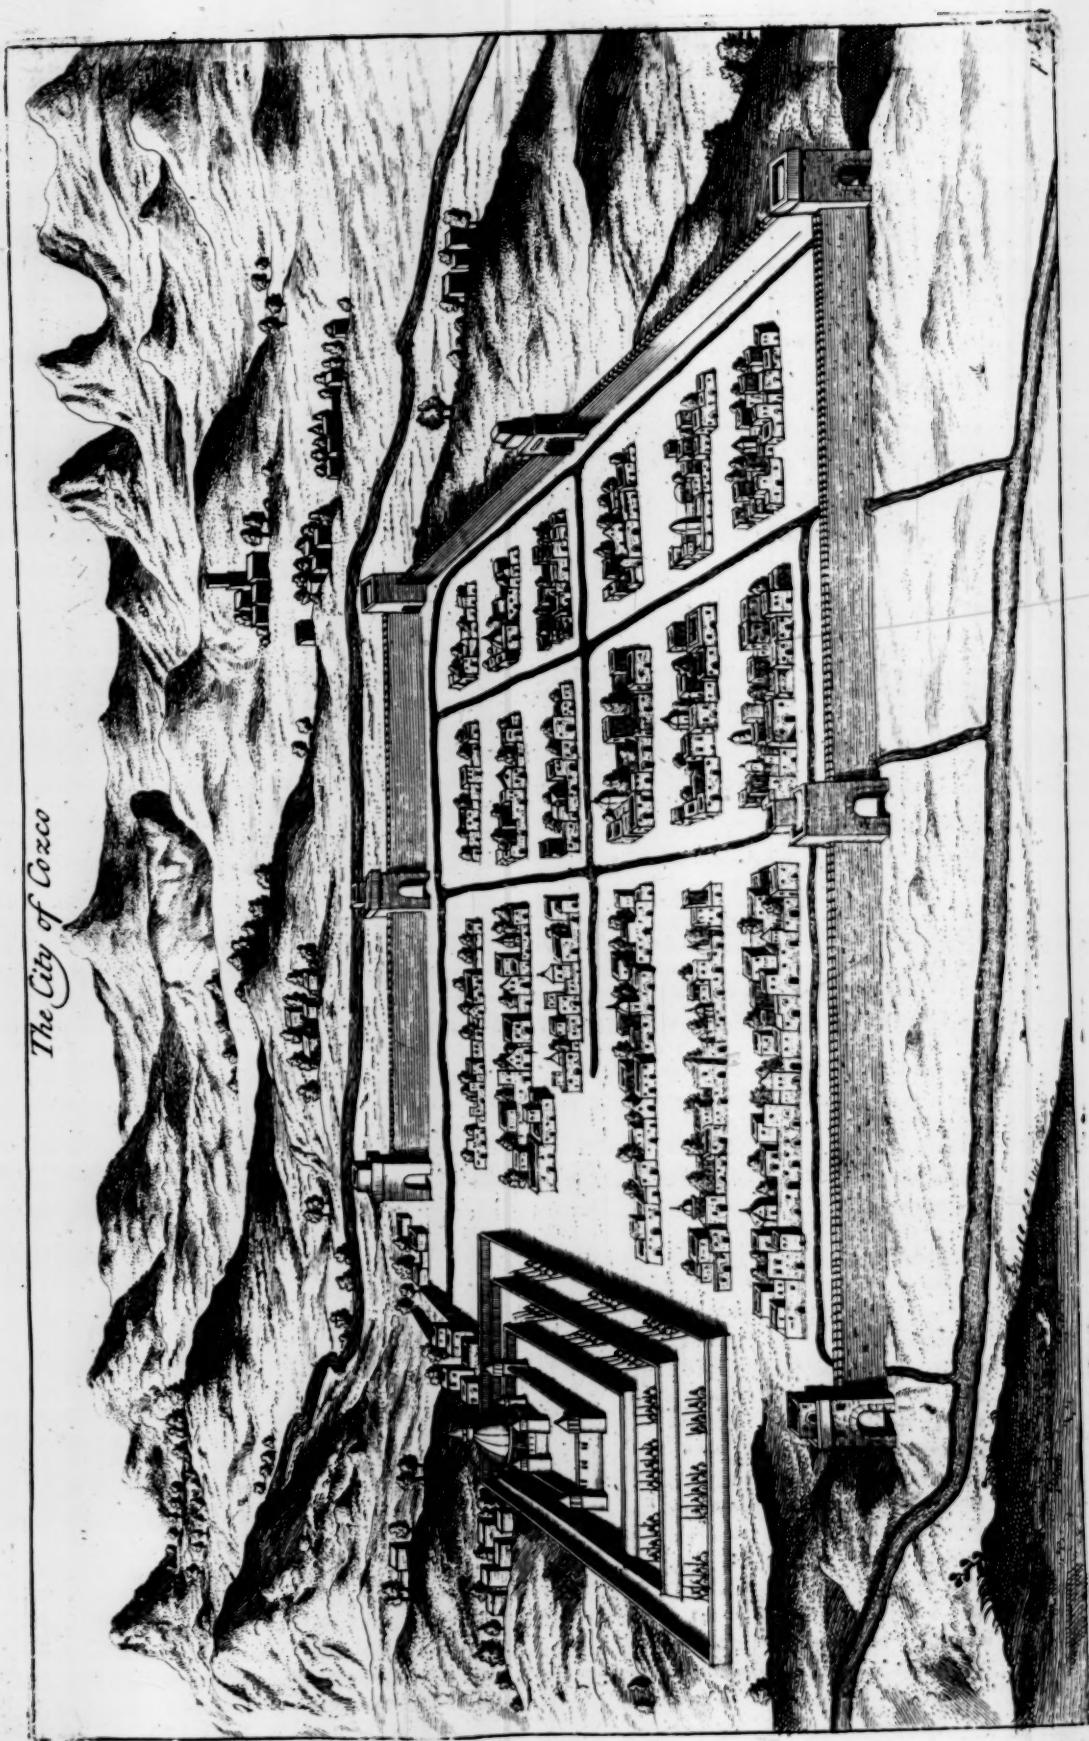 The City of Cozco